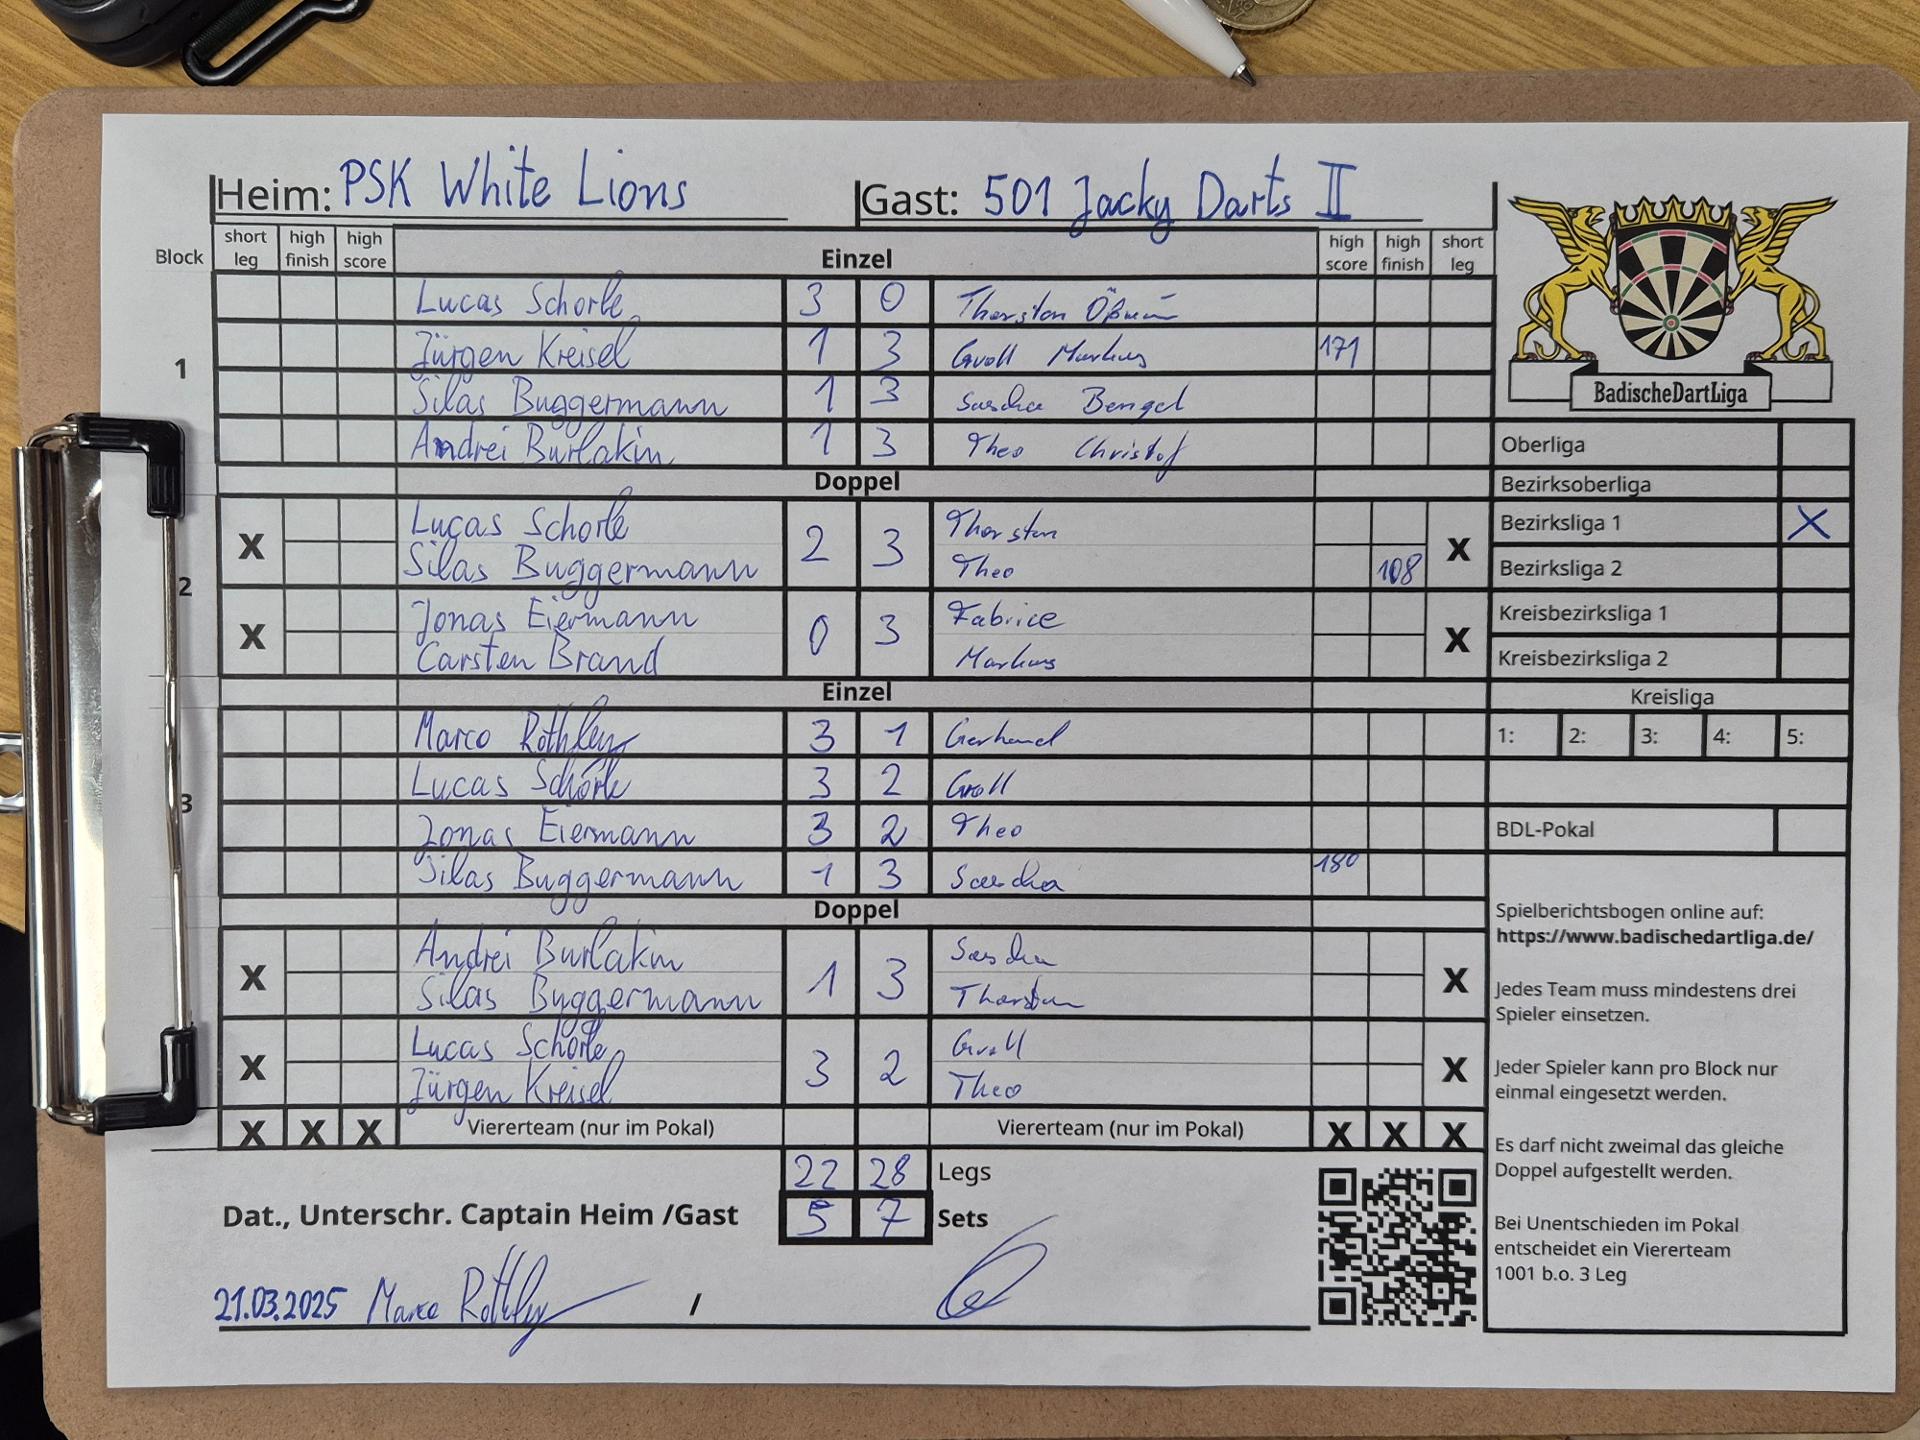 Heim: PSK White Lions Gast: 501 Jacky Darts II
Block short leg high finish high score Einzel high score high finish short leg
Lucas Schorle 3 0 Thorsten
1 Jürgen Kreisel 1 3 Groll Markus 171
Silas Buggermann 1 3 Sascha Bengel
Andrei Burlakin 1 3 Theo Christof
Doppel
X Lucas Schorle 2 3 Thorsten X
2 Silas Buggermann Theo 108
X Jonas Eiermann 0 3 Fabrice X
Carsten Brand Markus
Einzel
Marco Rothley 3 1 Gerhard
Lucas Schorle 3 2 Groll
3 Jonas Eiermann 3 2 Theo
Silas Buggermann 1 3 Sascha 180
Doppel
X Andrei Burlakin 1 3 Sascha X
Silas Buggermann Thorsten
X Lucas Schorle 3 2 Groll X
Jürgen Kreisel Theo
X X X Viererteam (nur im Pokal) Viererteam (nur im Pokal) X X X
22 28 Legs
Dat., Unterschr. Captain Heim /Gast 5 7 Sets
21.03.2025 Marco Rothley /
BadischeDartLiga
Oberliga
Bezirksoberliga
Bezirksliga 1 X
Bezirksliga 2
Kreisbezirksliga 1
Kreisbezirksliga 2
Kreisliga
1: 2: 3: 4: 5:
BDL-Pokal
Spielberichtsbogen online auf:
https://www.badischedartliga.de/
Jedes Team muss mindestens drei
Spieler einsetzen.
Jeder Spieler kann pro Block nur
einmal eingesetzt werden.
Es darf nicht zweimal das gleiche
Doppel aufgestellt werden.
Bei Unentschieden im Pokal
entscheidet ein Viererteam
1001 b.o. 3 Leg